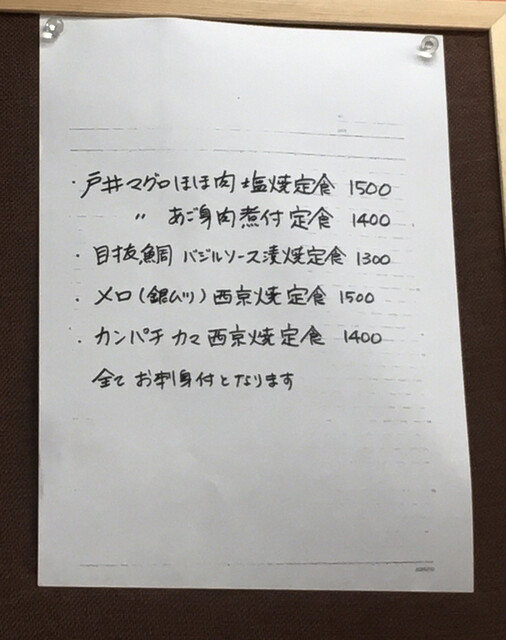 ・戸井マグロほほ肉塩焼定食 1500
〃 あご身肉煮付定食 1400
・目抜鯛 バジルソース漬焼定食 1300
・メロ(銀ムツ)西京焼定食 1500
・カンパチ カマ西京焼定食 1400
全てお刺身付となります